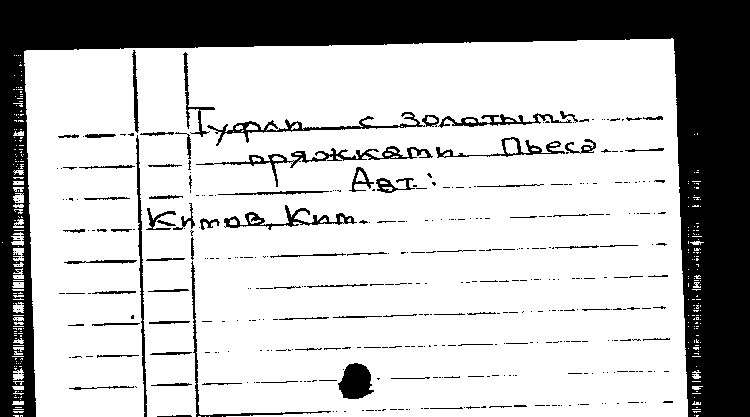 Туфли с золотыми
пряжками. Пьеса.
Авт.:
Китов, Ким.